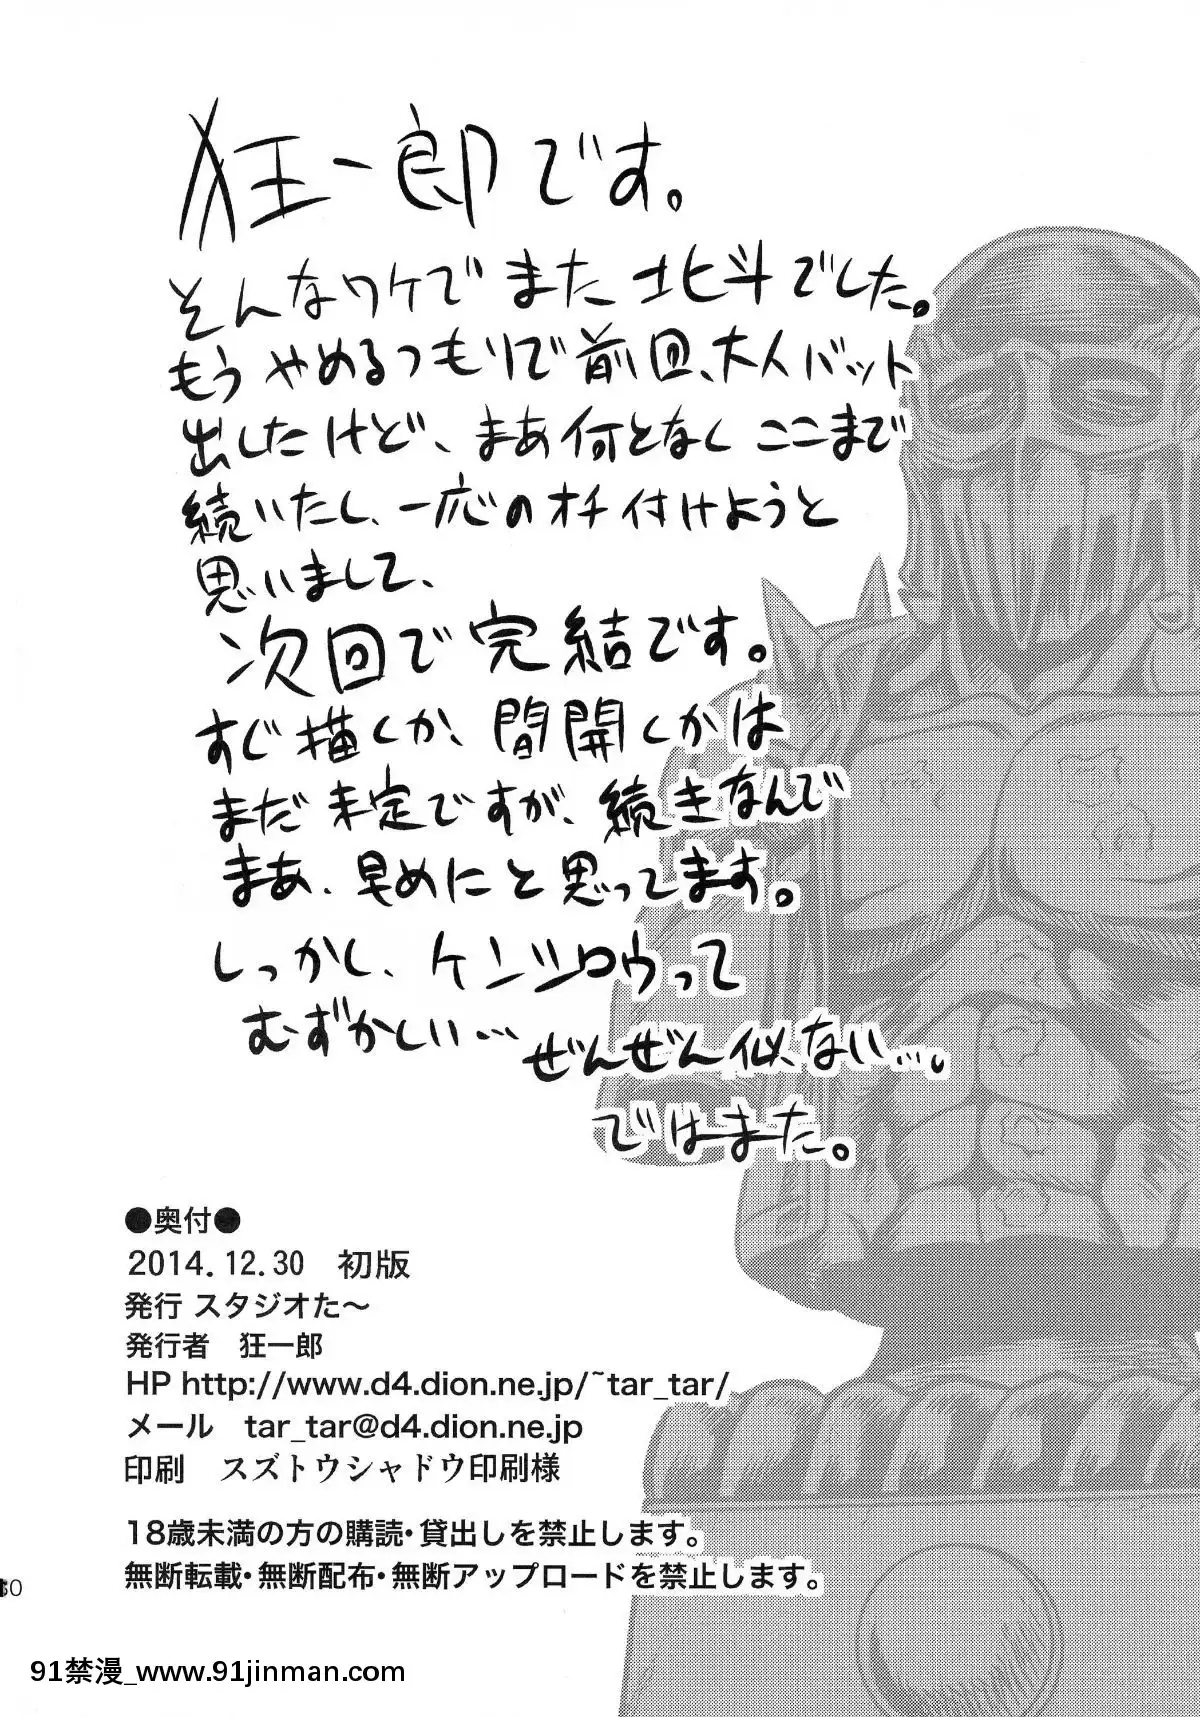 狂一郎です。
そんなワケでまた北斗でした。
もうやめるつもりで前回、大人バット
出したけど、まあ何となくここまで
続いたし、一応のオチ付けようと
思いまして、
次回で完結です。
すぐ描くか、間開くかは
まだ未定ですが、続きなんで
まあ、早めにと思ってます。
しっかし、ケンシロウって
むずかしい…
ぜんぜん似ない…。
ではまた。
●奥付●
2014.12.30 初版
発行 スタジオた〜
発行者 狂一郎
HP http://www.d4.dion.ne.jp/~tar_tar/
メール tar_tar@d4.dion.ne.jp
印刷 スズトウシャドウ印刷様
18歳未満の方の購読・貸出しを禁止します。
無断転載・無断配布・無断アップロードを禁止します。
91禁漫_www.91jinman.com